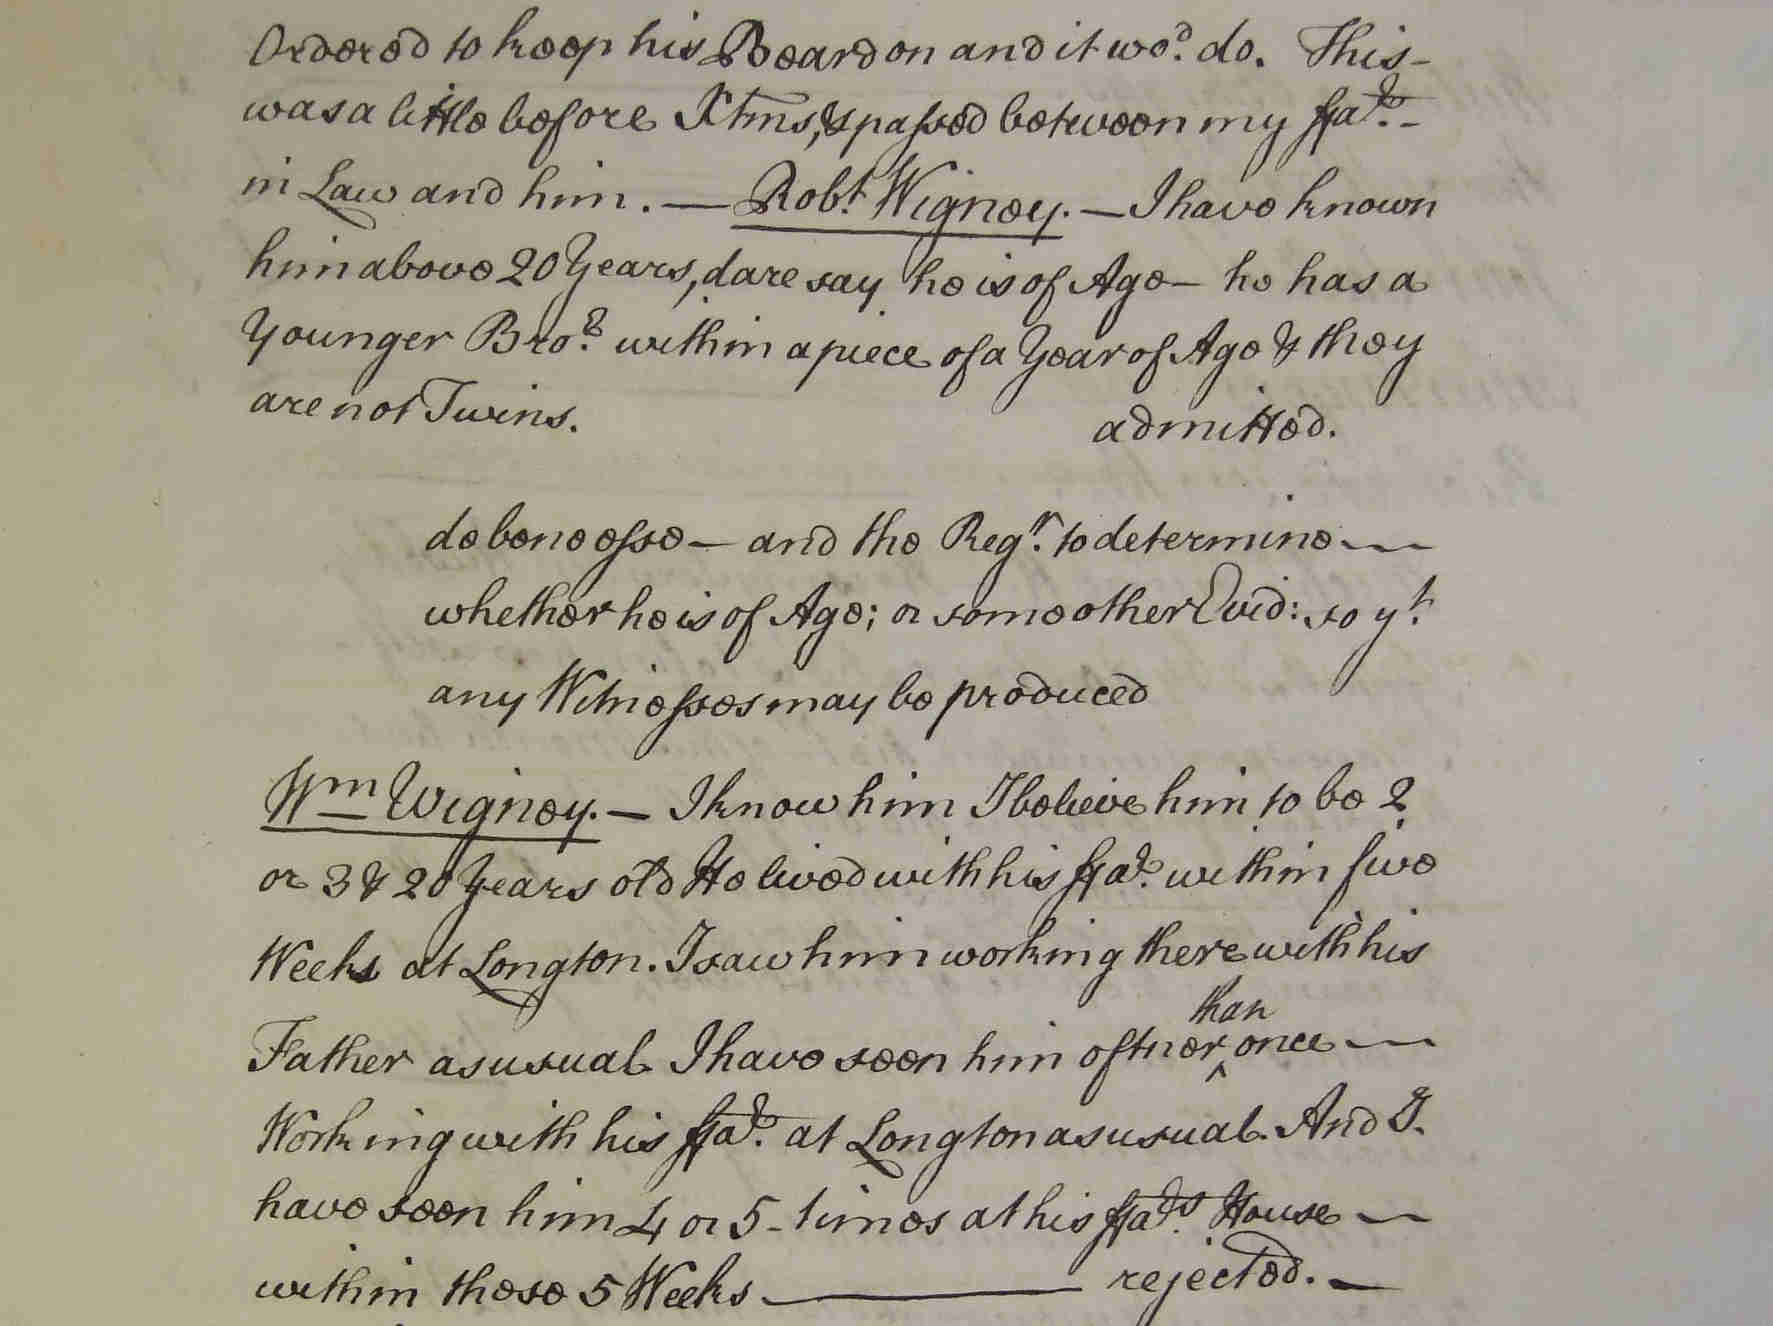 Ordered to keep his Beard on and it wod. do. This-
was a little before Xtms, & passed between my ffar.-
in Law and him. — Robt. Wigney. — I have known
him above 20 Years, dare say he is of Age — he has a
Younger Bror. within a piece of a Year of Age & they
are not Twins. admitted.
de bene esse — and the Regr. to determine —
whether he is of Age; or some other Evid: so yt.
any Witnesses may be produced
Wm Wigney. — I know him I believe him to be 2
or 3 & 20 Years old He lived with his ffar. within five
Weeks at Longton. I saw him working there with his
Father as usual. I have seen him oftner than once —
Working with his ffar. at Longton as usual. And I.
have seen him 4 or 5 - times at his ffars. House —
within these 5 Weeks — rejected. —